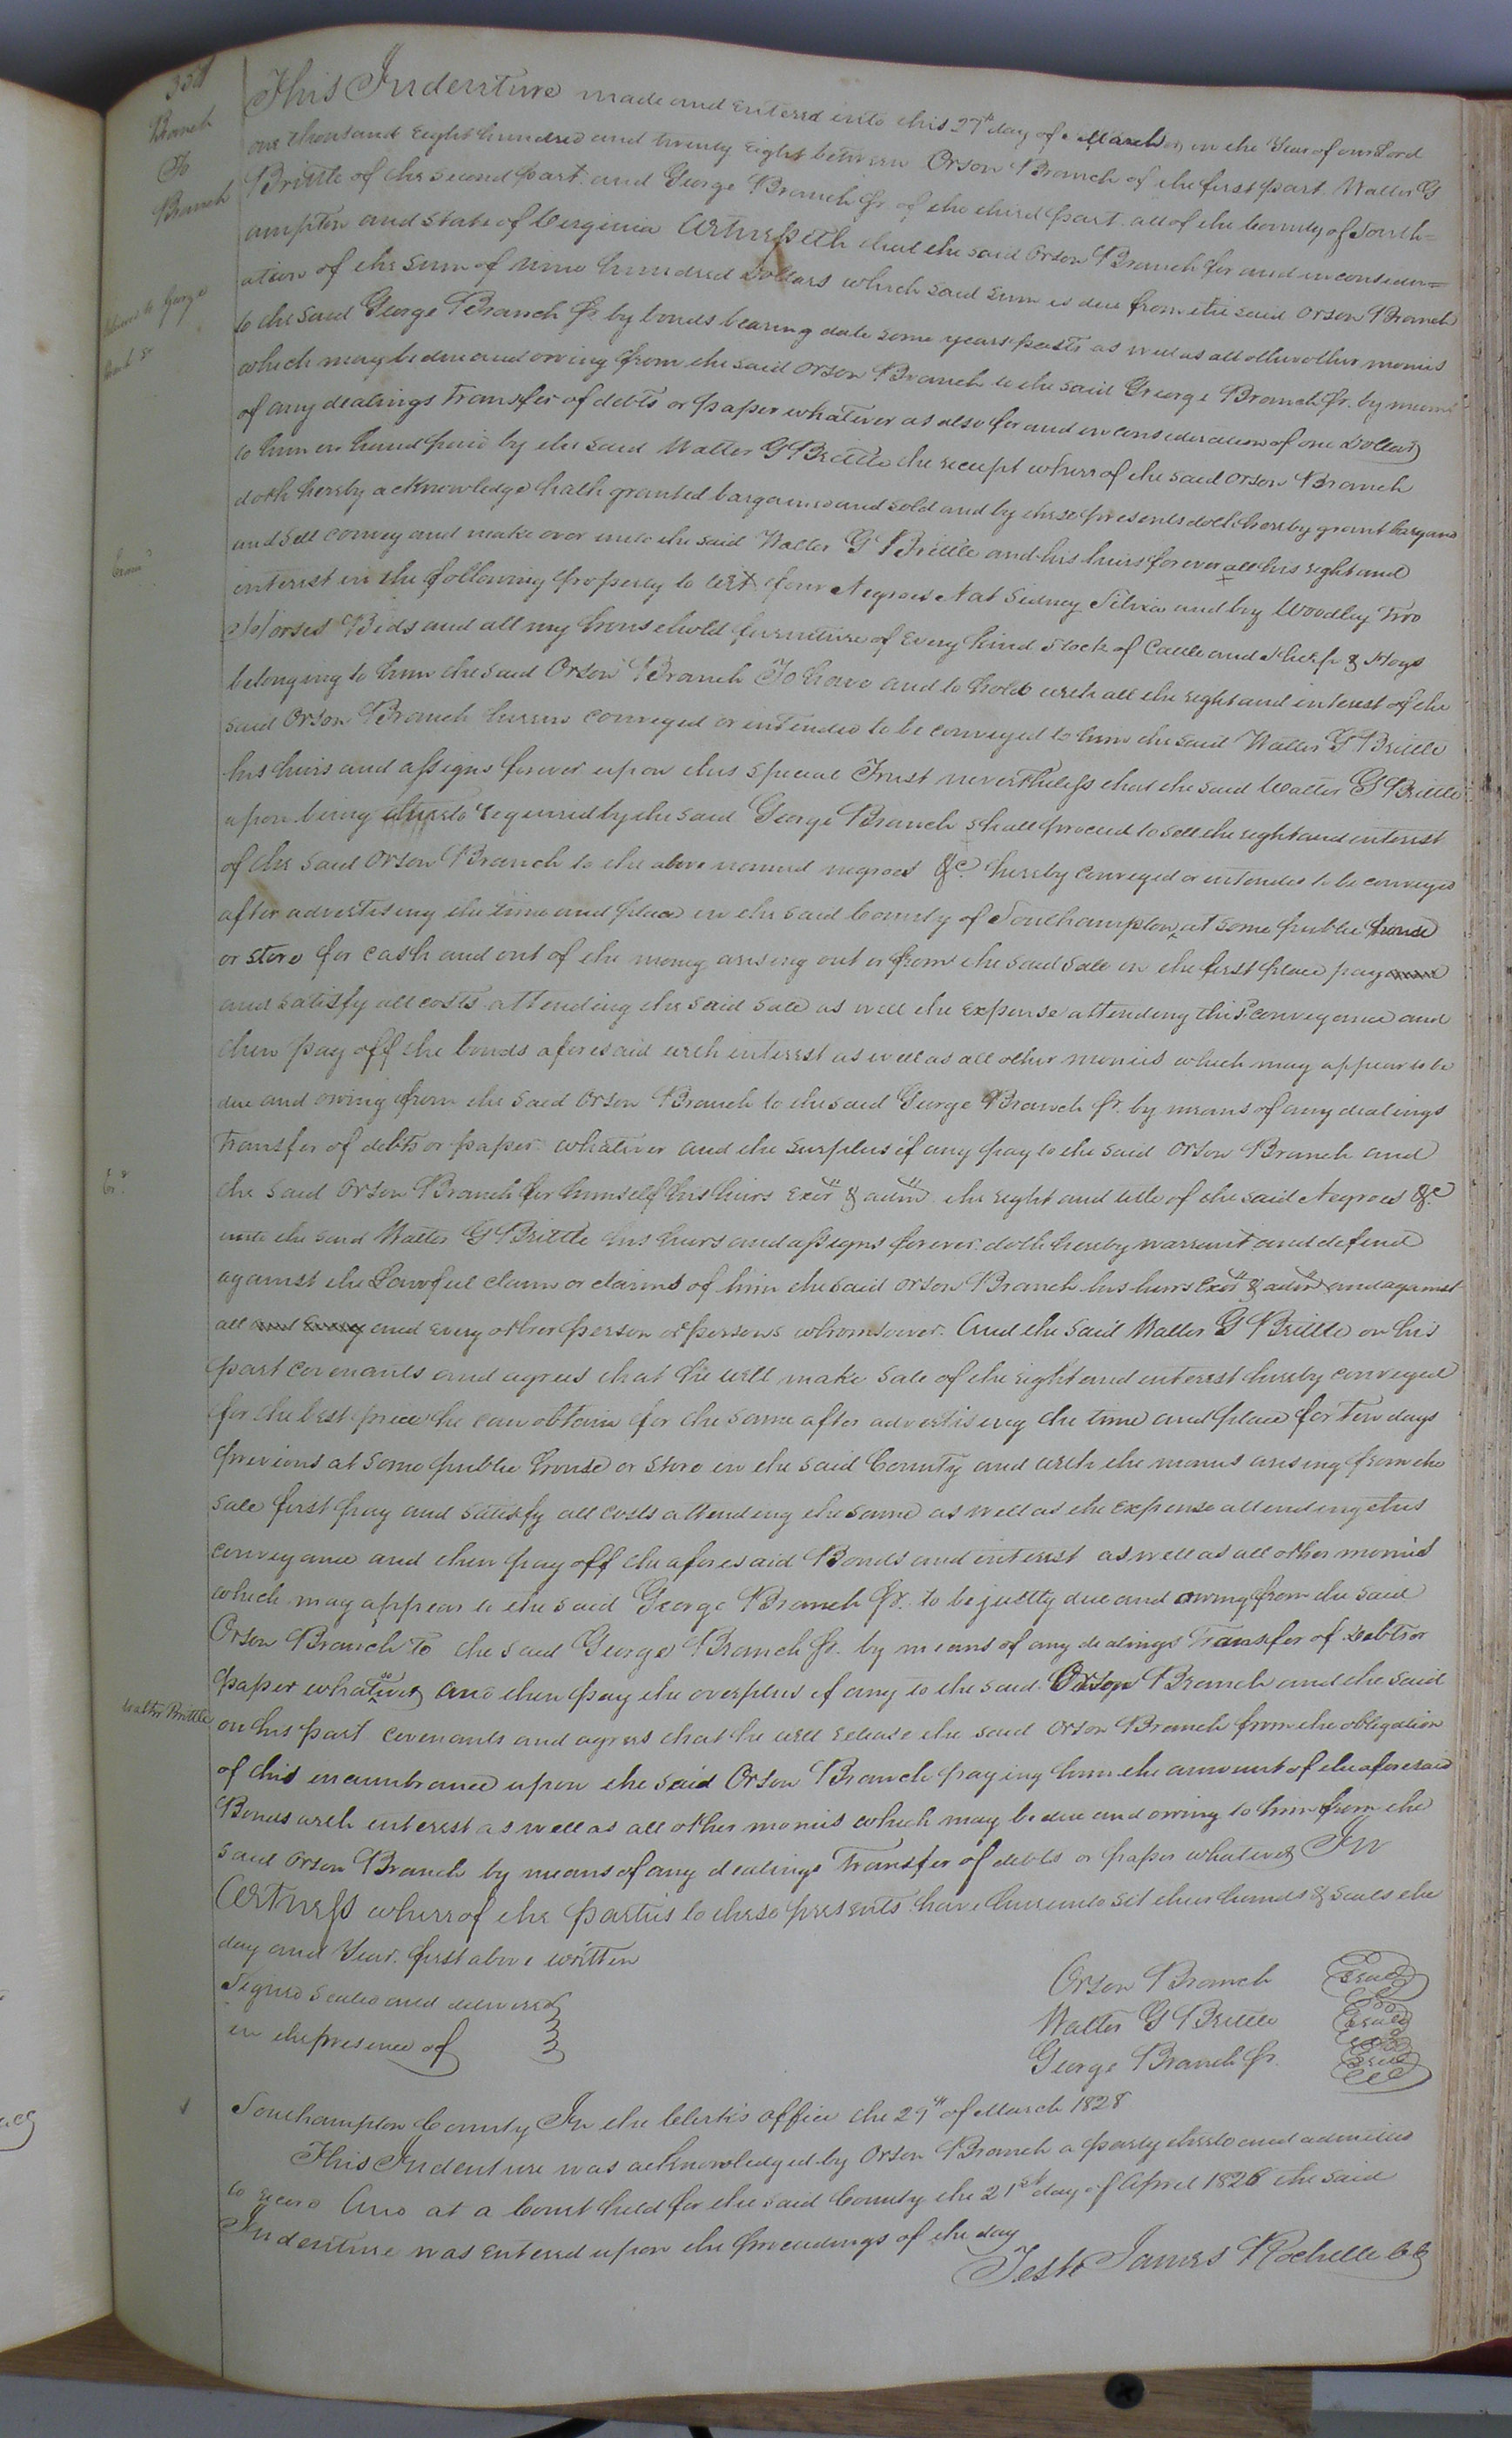 Branch
To
Branch
This Indenture made and entered into this 27th day of March in the Year of our Lord
one thousand Eight hundred and twenty Eight between Orson Branch of the first part Walter G
Brittle of the second part and George Branch Jr of the third part all of the County of South=
ampton and State of Virginia Witnesseth that the said Orson Branch for and in consider=
ation of the sum of Nine hundred Dollars which said sum is due from the said Orson Branch
to the said George Branch Jr by bonds bearing date some years past as well as all other other monies
which may be due and owing from the said Orson Branch to the said George Branch Jr. by means
of any dealings Transfer of debts or paper whatever as also for and in consideration of one Dollar
to him in hand paid by the said Walter G Brittle the receipt whereof the said Orson Branch
doth hereby acknowledge hath granted bargained and sold and by these presents doth hereby grant bargain
and Sell convey and make over unto the said Walter G Brittle and his heirs forever all his right and
interest in the following property to wit four Negroes Nat Sidney Silvia and boy Woodley Two
Horses Beds and all my household furniture of Every kind Stock of Cattle and Sheep & Hogs
belonging to him the said Orson Branch To have and to hold with all the right and interest of the
said Orson Branch herein conveyed or intended to be conveyed to him the said Walter G Brittle
his heirs and assigns forever upon this Special Trust nevertheless that the said Walter G Brittle
upon being thereto required by the said George Branch shall proceed to sell the right and interest
of the said Orson Branch to the above named negroes &c. hereby conveyed or intended to be conveyed
after advertising the time and place in the said County of Southampton at some public house
or store for cash and out of the money arising out or from the said Sale in the first place pay
and satisfy all costs attending the said sale as well the expense attending this conveyance and
then pay off the bonds aforesaid with interest as well as all other monies which may appear to be
due and owing from the said Orson Branch to the said George Branch Jr. by means of any dealings
Transfer of debts or paper whatever and the surplus if any pay to the said Orson Branch and
the said Orson Branch for himself his heirs Exors & admrs the right and title of the said Negroes &c
unto the said Walter G Brittle his heirs and assigns forever doth hereby warrant and defend
against the Lawful claim or claims of him the said Orson Branch his heirs Exors & admrs and against
all and every and every other person or persons whomsoever. And the said Walter G Brittle on his
part covenants and agrees that he will make sale of the right and interest hereby conveyed
for the best price he can obtain for the same after advertising the time and place for Ten days
previous at some public house or store in the said County and with the monies arising from the
sale first pay and satisfy all costs attending the same as well as the Expense attending this
conveyance and then pay off the aforesaid Bonds and interest as well as all other monies
which may appear to the said George Branch Jr. to be justly due and owing from the said
Orson Branch To the said George Branch Jr. by means of any dealings Transfer of Debts or
paper whatsoever and then pay the overplus if any to the said Orson Branch and the said
Walter Brittle on his part covenants and agrees that he will release the said Orson Branch from the obligation
of this incumbrance upon the said Orson Branch paying him the amount of the aforesaid
Bonds with interest as well as all other monies which may be due and owing to him from the
said Orson Branch by means of any dealings Transfer of debts or paper whatever In
Witness whereof the parties to these presents have hereunto set their hands & seals the
day and Year first above written
Signed Sealed and delivered
in the presence of
Orson Branch Seal
Walter G Brittle Seal
George Branch Jr. Seal
Southampton County In the Clerk's office the 29th of March 1828
This Indenture was acknowledged by Orson Branch a party thereto and admitted
to record And at a Court held for the said County the 21st day of April 1828 the said
Indenture was entered upon the proceedings of the day
Teste James Rochelle CC